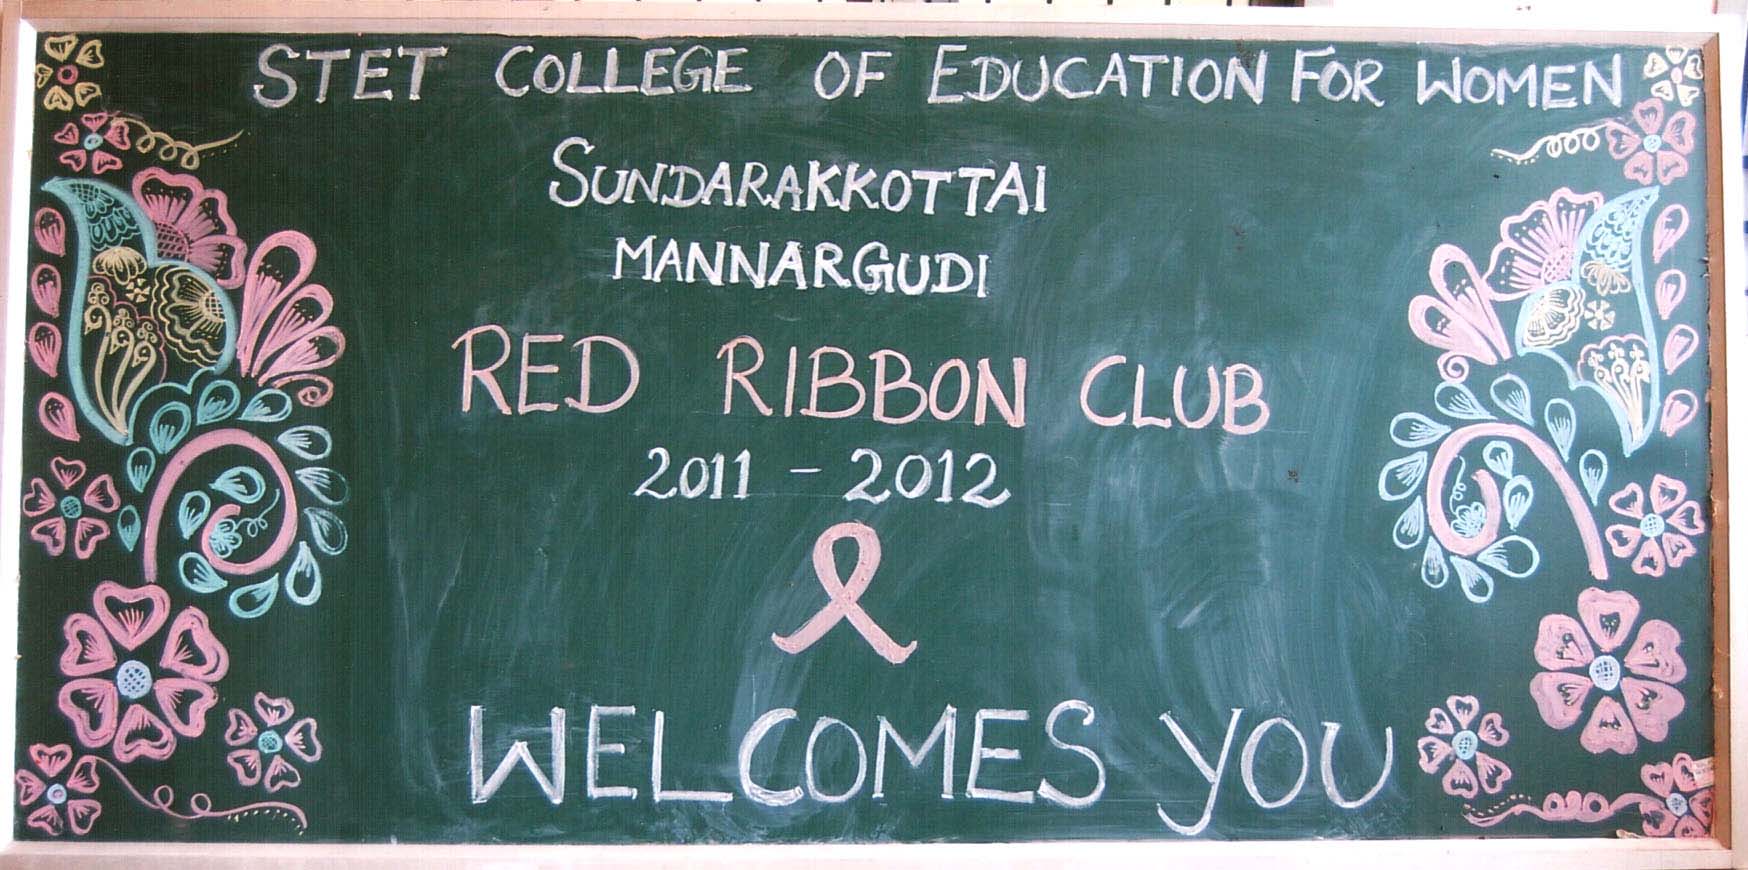 STET COLLEGE OF EDUCATION FOR WOMEN
SUNDARAKKOTTAI
MANNARGUDI
RED RIBBON CLUB
2011 - 2012
WELCOMES YOU